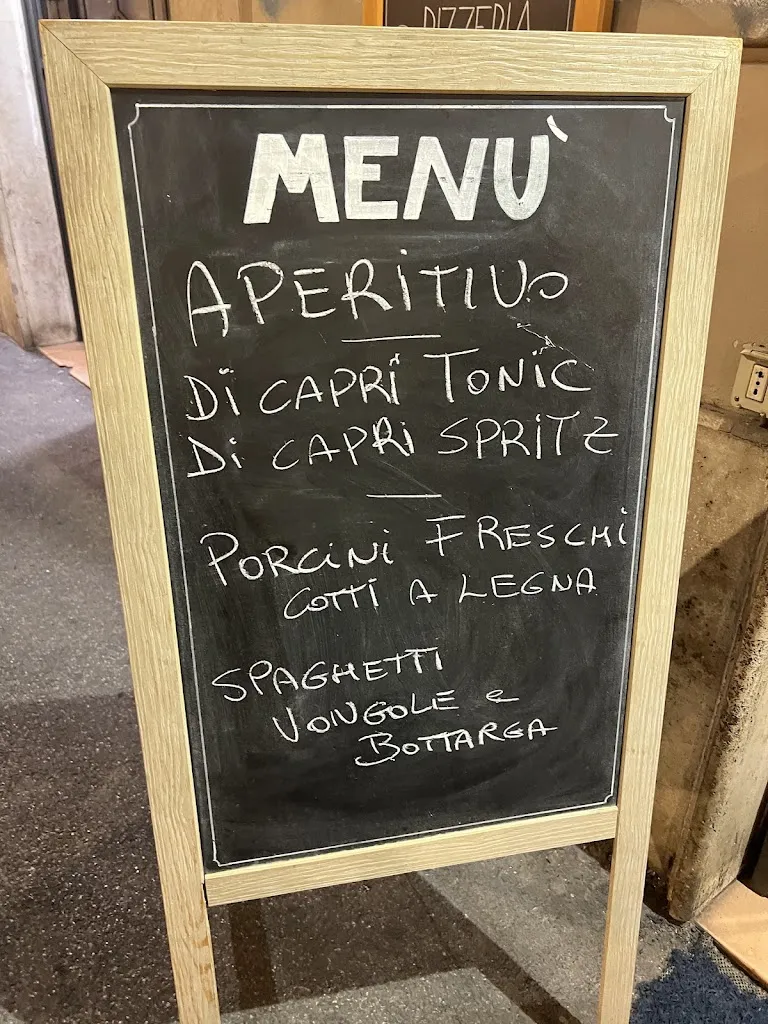 PIZZERIA
MENÙ
APERITIVO
Di CAPRi TONiC
Di CAPRi SPRiTZ
PORCiNi FRESCHi
COTTi A LEGNA
SPAGHETTi
VONGOLE e
BOTTARGA